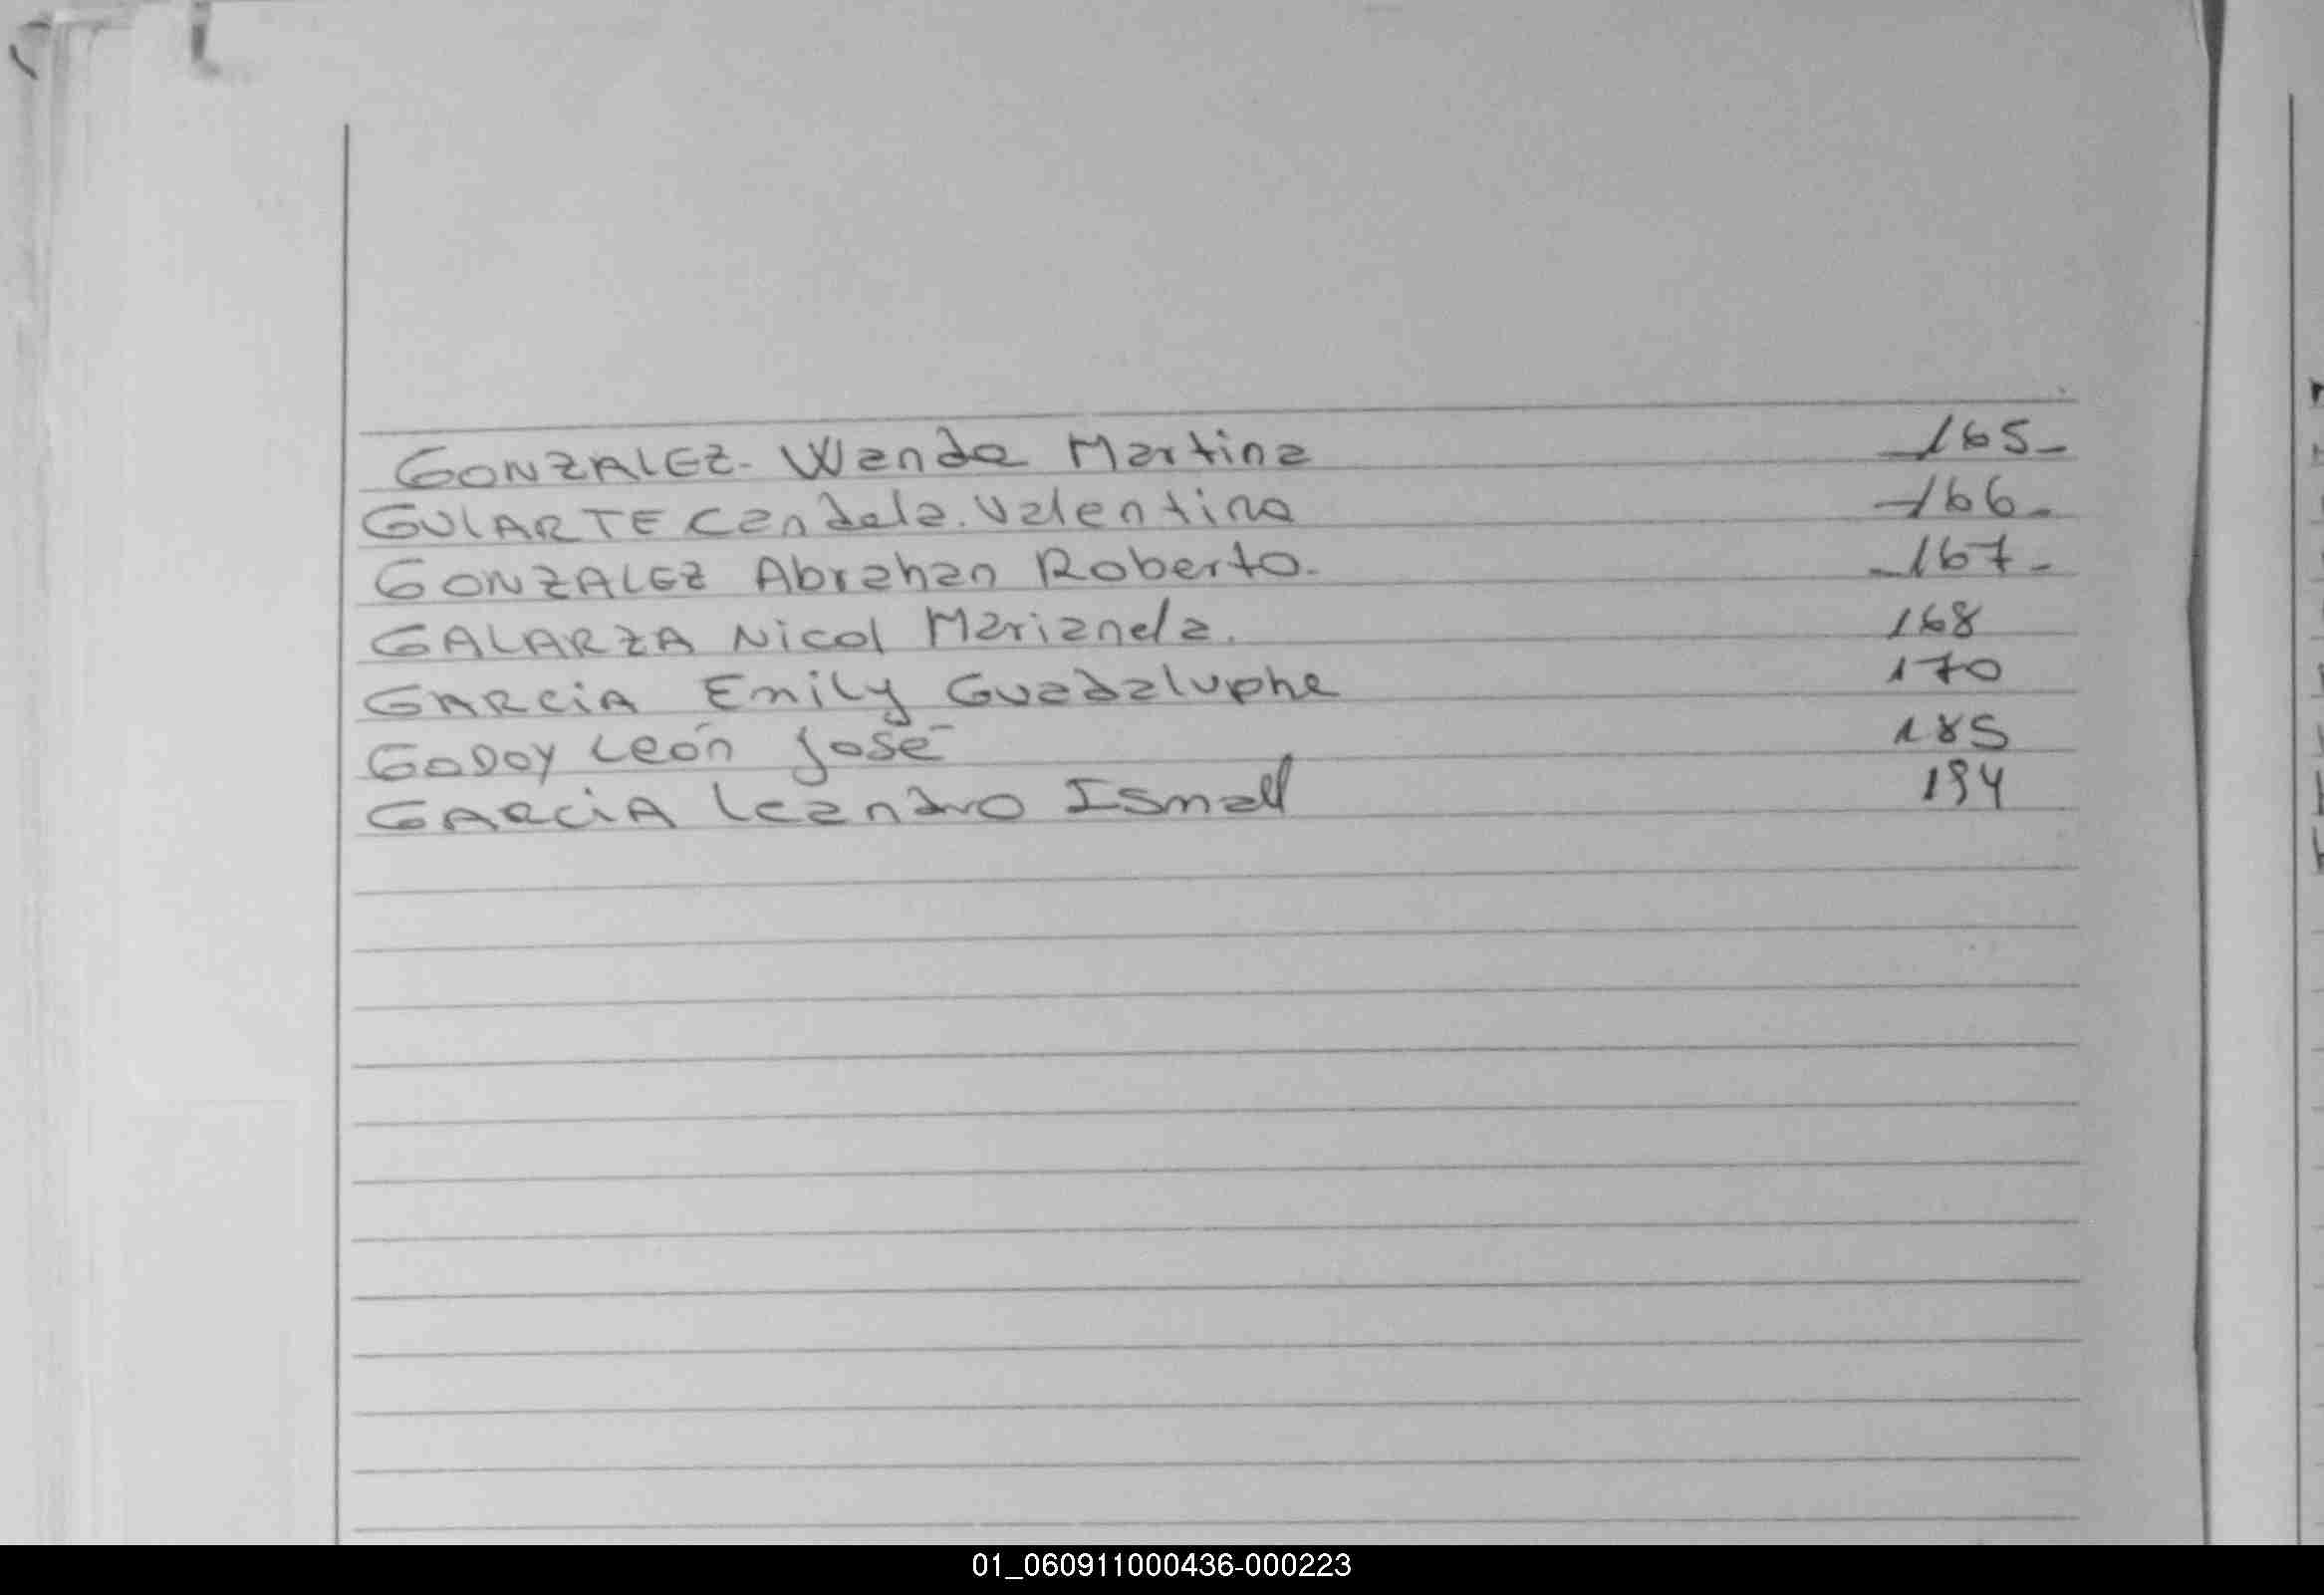 GONZALEZ - Wanda Martina -165-
GULARTE Candela. Valentina -166-
GONZALEZ Abrahan Roberto. -167-
GALARZA Nicol Marianela. 168
GARCIA Emily Guadaluphe 170
GODOY León José 185
GARCIA Leandro 194
01_060911000436-000223